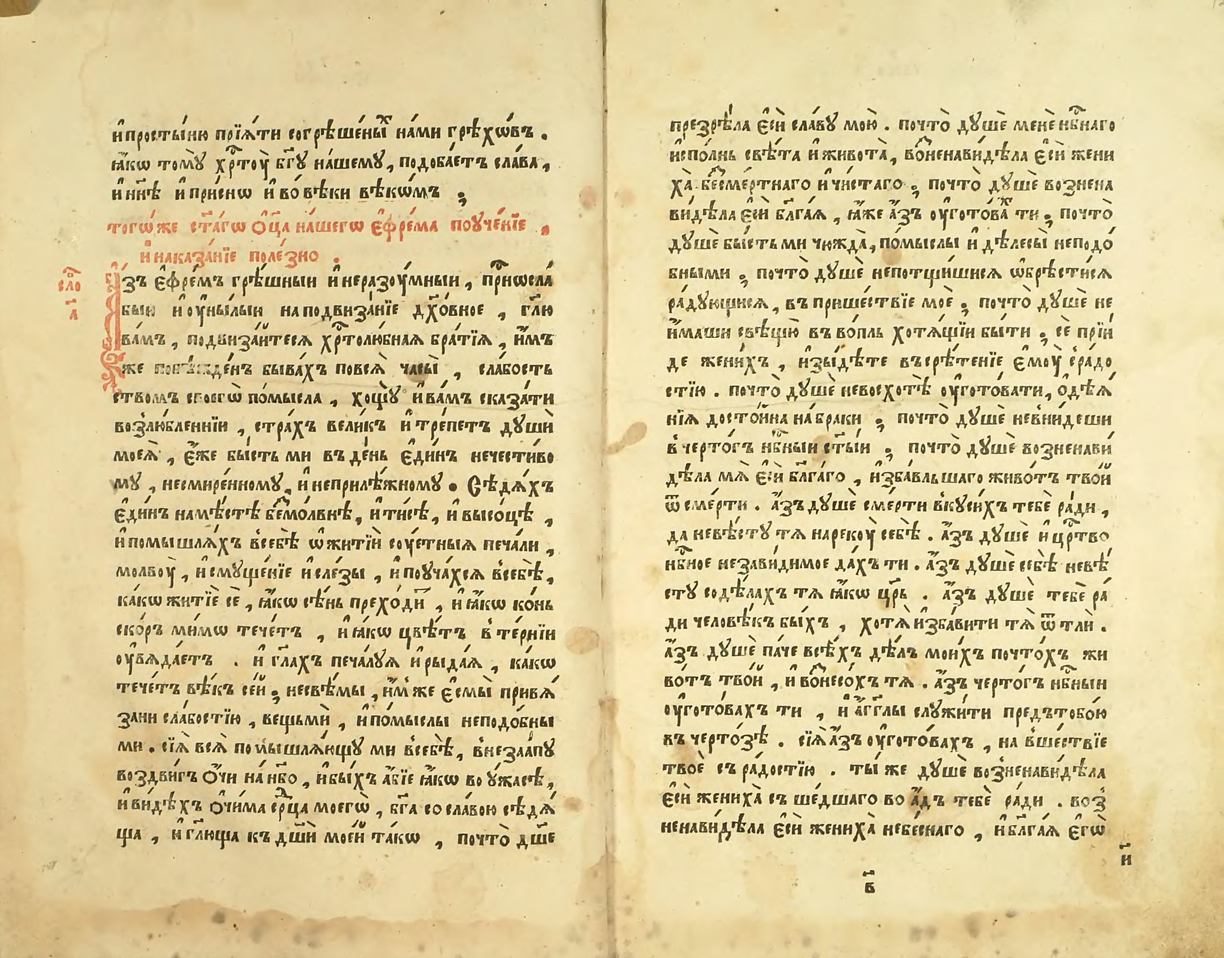 и҆просты́ню прїѧ́ти согрѣшены́ⷯ на́ми грѣхѡ́въ .
ꙗ҆́кѡ томꙋ̀ хрⷭ҇тꙋ̀ бг҃ꙋ на́шемꙋ, подоба́етъ сла́ва ,
и҆ нн҃ѣ и҆ при́снѡ и҆ во вѣ́ки вѣкѡ́мъ ;
тогѡ́же ст҃а́гѡ ѻ҆ц҃а на́шегѡ є҆фре́ма поꙋче́нїе ,
и҆ наказа́нїе поле́зно .
сло́
а҃
А҆́зъ є҆фре́мъ грѣ́шныи и҆ неразоу́мныи , при́ѡсла
быи и҆ оу҆ны́лыи на подвиза́нїе дх҃о́вное , гл҃ю
ва́мъ , подвиза́итесѧ хрⷭ҇толю́бнаѧ бра́тїѧ , и҆́мъ
же побѣжде́нъ быва́хъ по всѧ̀ часы̀ , сла́бость
ствомъ своегѡ̀ по́мысла , хощꙋ̀ и҆ ва́мъ сказа́ти
возлю́бленнїи , стра́хъ вели́къ и҆ тре́петъ дꙋшѝ
моеѧ̀ , є҆́же бы́сть ми въ де́нь є҆ди́нъ нечести́во
мꙋ , несмире́нномꙋ , и҆ неприлѣ́жномꙋ . Сѣдѧ́хъ
є҆ди́нъ на мѣ́стѣ безмо́лвнѣ , и҆ ти́сѣ , и҆ высо́цѣ ,
и҆ помышлѧ́хъ в себѣ̀ ѡ҆ житїѝ соу́етныѧ печа́ли ,
молвоу̀ , и҆ смꙋще́нїе и҆ сле́зы , и҆ поꙋча́хсѧ в себѣ̀ ,
ка́кѡ житїѐ сѐ , ꙗ҆́кѡ сѣ́нь прехо́диⷮ , и҆ ꙗ҆́кѡ ко́нь
ско́ръ ми́мѡ тече́тъ , и҆ ꙗ҆́кѡ цвѣ́тъ в те́рнїи
оу҆вѧда́етъ . и҆ гл҃ахъ печа́лꙋѧ и҆ рыда́ѧ , ка́кѡ
тече́тъ вѣ́къ се́й ; несвѣ́мы , и҆́мже є҆смы̀ привѧ́
зани сла́бостїю , вещьмѝ , и҆ по́мыслы неподо́бны
ми . сїѧ̀ всѧ̀ помышлѧ́ющꙋ ми в себѣ̀ , внеза́апꙋ
воздви́гъ ѻ҆́чи на нб҃о , и҆ бы́хъ а҆́бїе ꙗ҆́кѡ во оу҆́жасѣ ,
и҆ ви́дѣхъ ѻ҆чи́ма срⷣца моегѡ̀ , бг҃а со сла́вою сѣдѧ́
ща , и҆ гл҃юща къ дш҃и мое́й та́кѡ , почто̀ дш҃е
презрѣ́ла є҆сѝ сла́вꙋ мою̀ . почто̀ дꙋшѐ менѐ нбⷭ҇наго
и҆спо́лнь свѣ́та и҆ живота̀ , воⷥненави́дѣла є҆сѝ жени
ха̀ безсме́ртнаго и҆ чи́стаго ; почто̀ дꙋшѐ вознена
ви́дѣла є҆сѝ бл҃га́ѧ , ꙗ҆́же а҆́зъ оу҆гото́ваⷯ ти ; почто̀
дꙋшѐ бы́сть ми чюжда̀ , по́мыслы и҆ дѣ́лесы неподо́
бными ; почто̀ дꙋшѐ непотщи́шисѧ ѡ҆брѣсти́сѧ
ра́дꙋющисѧ , въ прише́ствїе моѐ ; почто̀ дꙋшѐ не
и҆́маши свѣщю̀ въ во́пль хотѧ́щїи бы́ти ; се̂ прїи́
де жени́хъ , и҆зы́дѣте въ срѣ́тенїе є҆моу̀ с ра́до
стїю . почто̀ дꙋшѐ невосхотѣ̀ оу҆гото́вати , ѻ҆дѣѧ́
нїѧ досто́йна на бра́ки ; почто̀ дꙋшѐ невни́деши
в черто́гъ нбⷭ҇ныи ст҃ыи ; почто̀ дꙋшѐ возненави́
дѣла мѧ̀ є҆сѝ бл҃га́го , и҆зба́вльшаго живо́тъ тво́й
ѿ сме́рти . а҆́зъ дꙋшѐ сме́рти вкꙋси́хъ тебѐ ра́ди ,
да невѣ́стꙋ тѧ̀ нарекоу̀ себѣ̀ . а҆́зъ дꙋшѐ и҆ црⷭ҇тво
нбⷭ҇ное незави́димое да́хъ ти . а҆́зъ дꙋшѐ себѣ̀ невѣ́
стꙋ содѣ́лахъ тѧ̀ ꙗ҆́кѡ цр҃ь . а҆́зъ дꙋшѐ тебѐ ра́
ди человѣ́къ бы́хъ , хотѧ̀ и҆зба́вити тѧ̀ ѿ тли̂ .
а҆́зъ дꙋшѐ па́че всѣ́хъ дѣ́лъ мои́хъ почто́хъ жи
во́тъ тво́й , и҆ воⷥнесо́хъ тѧ̀ . а҆́зъ черто́гъ нбⷭ҇ныи
оу҆гото́вахъ ти , и҆ а҆́гг҃лы слꙋжи́ти предъ тобо́ю
въ черто́зѣ . сїѧ̀ а҆́зъ оу҆гото́вахъ , на вше́ствїе
твоѐ съ ра́достїю . ты́ же дꙋшѐ возненави́дѣла
є҆сѝ жениха̀ съшéдшаго во а҆́дъ тебѐ ра́ди . воз
ненави́дѣла є҆сѝ жениха̀ небе́снаго , и҆ бл҃га́ѧ є҆гѡ̀
и҃
в҃